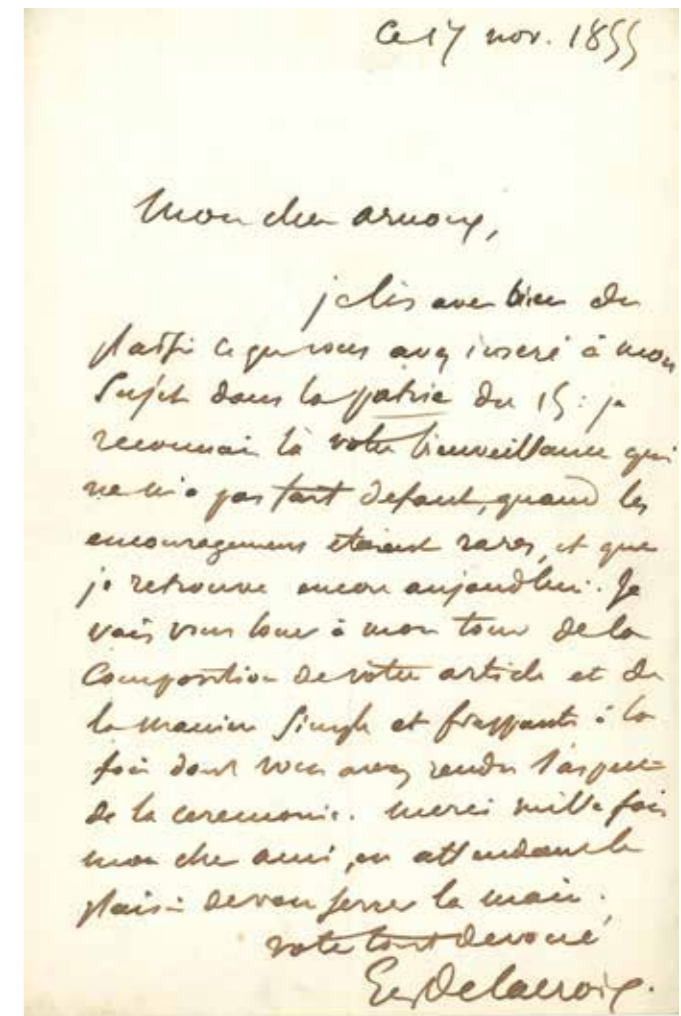 Ce 17 nov. 1855
Mon cher arnoux,
je lis avec bien du
plaisir ce que vous avez inseré à mon
sujet dans la patrie du 15 : je
reconnais là votre bienveillance qui
ne m'a pas fait defaut, quand les
encouragemens etaient rares, et que
je retrouve encore aujourdhui. Je
vais vous louer à mon tour de la
Composition de votre article et de
la maniere simple et frappante à la
fois dont vous avez rendu l'aspect
de la ceremonie. merci mille fois
mon cher ami, en attendant le
plaisir de vous serrer la main.
votre tout devoué
Eug Delacroix.